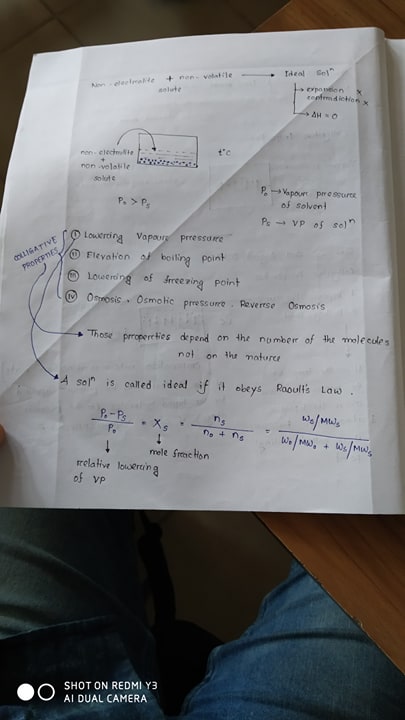 Non-electrolite + non-volatile solute → Ideal Solⁿ
→ expansion x
contradiction x
→ ΔH = 0
non-electrolite
+
non-volatile
solute
t°C
P₀ > Pₛ
P₀ → Vapour pressure
of solvent
Pₛ → VP of solⁿ
COLLIGATIVE
PROPERTIES
(i) Lowering Vapour pressure
(ii) Elevation of boiling point
(iii) Lowering of freezing point
(iv) Osmosis, Osmotic pressure, Reverse Osmosis
Those properties depend on the number of the molecules
not on the nature
A solⁿ is called ideal if it obeys Raoult's Law.
(P₀-Pₛ)/P₀ = Xₛ = nₛ/(n₀ + nₛ) = (Wₛ/MWₛ)/(W₀/MW₀ + Wₛ/MWₛ)
mole fraction
relative lowering
of VP
SHOT ON REDMI Y3
AI DUAL CAMERA